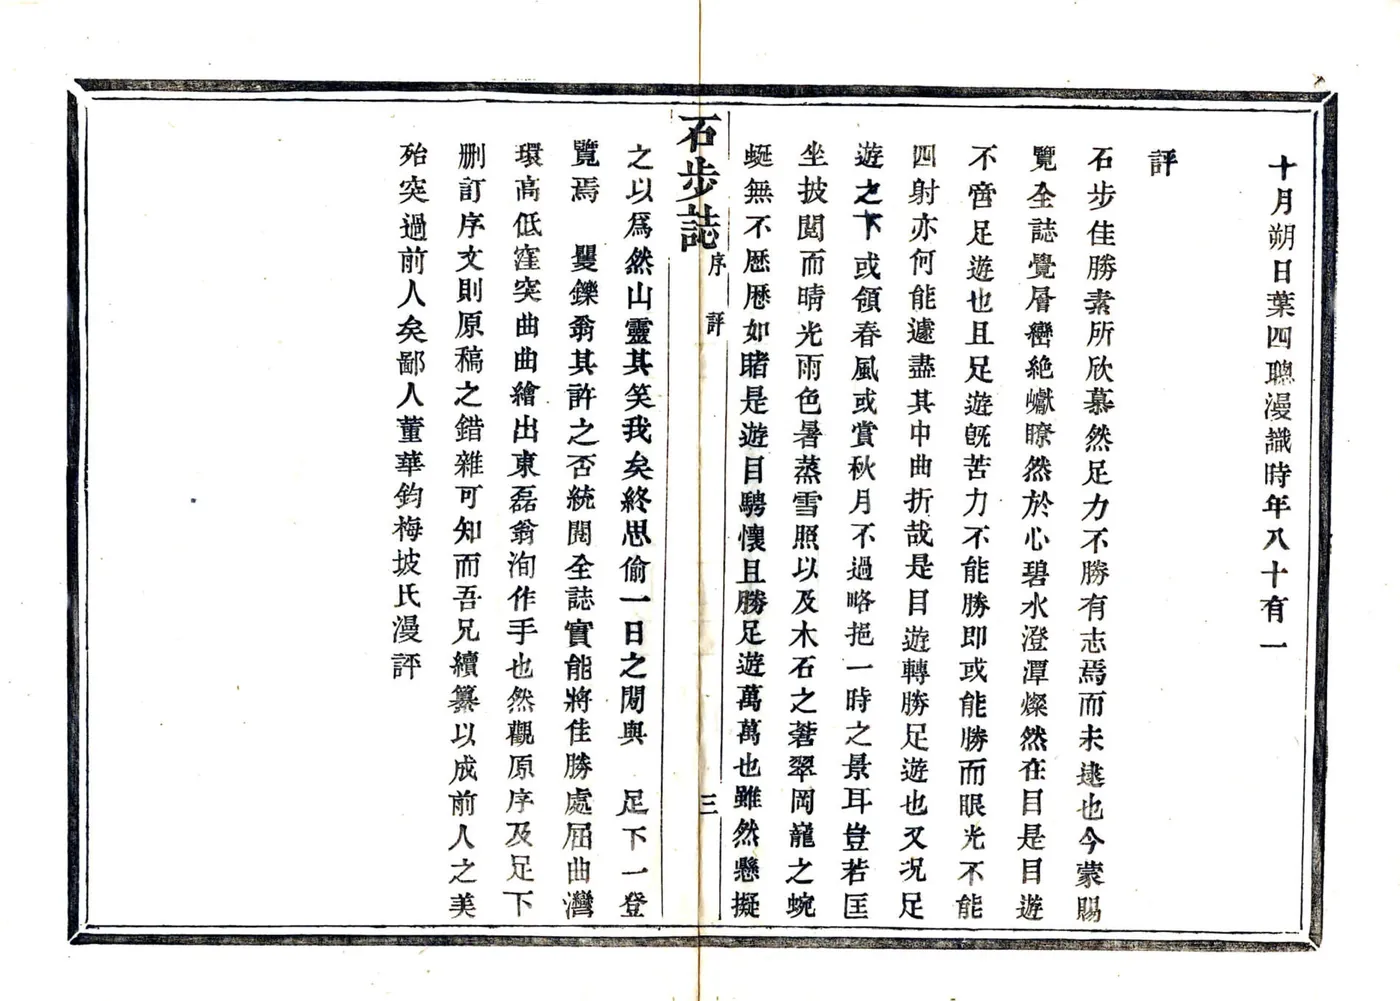 十月朔日葉四聰漫識時年八十有一
評
石步佳勝素所欣慕然足力不勝有志焉而未逮也今蒙賜
覽全誌覺層巒絶巘瞭然於心碧水澄潭燦然在目是目遊
不啻足遊也且足遊旣苦力不能勝即或能勝而眼光不能
四射亦何能遽盡其中曲折哉是目遊轉勝足遊也又况足
遊之下或領春風或賞秋月不過略挹一時之景耳豈若匡
坐披閲而晴光雨色暑蒸雪照以及木石之蒼翠岡龍之蜿
蜒無不歷歷如睹是遊目騁懷且勝足遊萬萬也雖然懸擬
石步誌 序 評 三
之以爲然山靈其笑我矣終思偷一日之閒與 足下一登
覽焉 矍鑠翁其許之否統閱全誌實能將佳勝處屈曲灣
環高低窪突曲曲繪出東磊翁洵作手也然觀原序及足下
删訂序文則原稿之錯雜可知而吾兄續纂以成前人之美
殆突過前人矣鄙人董華鈞梅坡氏漫評